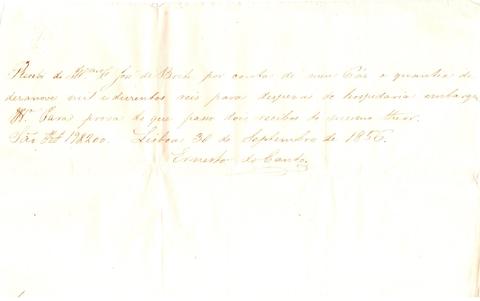 Recebi de José de por conta de meu Pái a quantia de
dezanove mil e duzentos reis para despezas de hospedaria embarque
Para prova do que passo dois recibos do mesmo theor.
19$200. Lisboa 30 de Septembro de 1856.
Ernesto do Canto